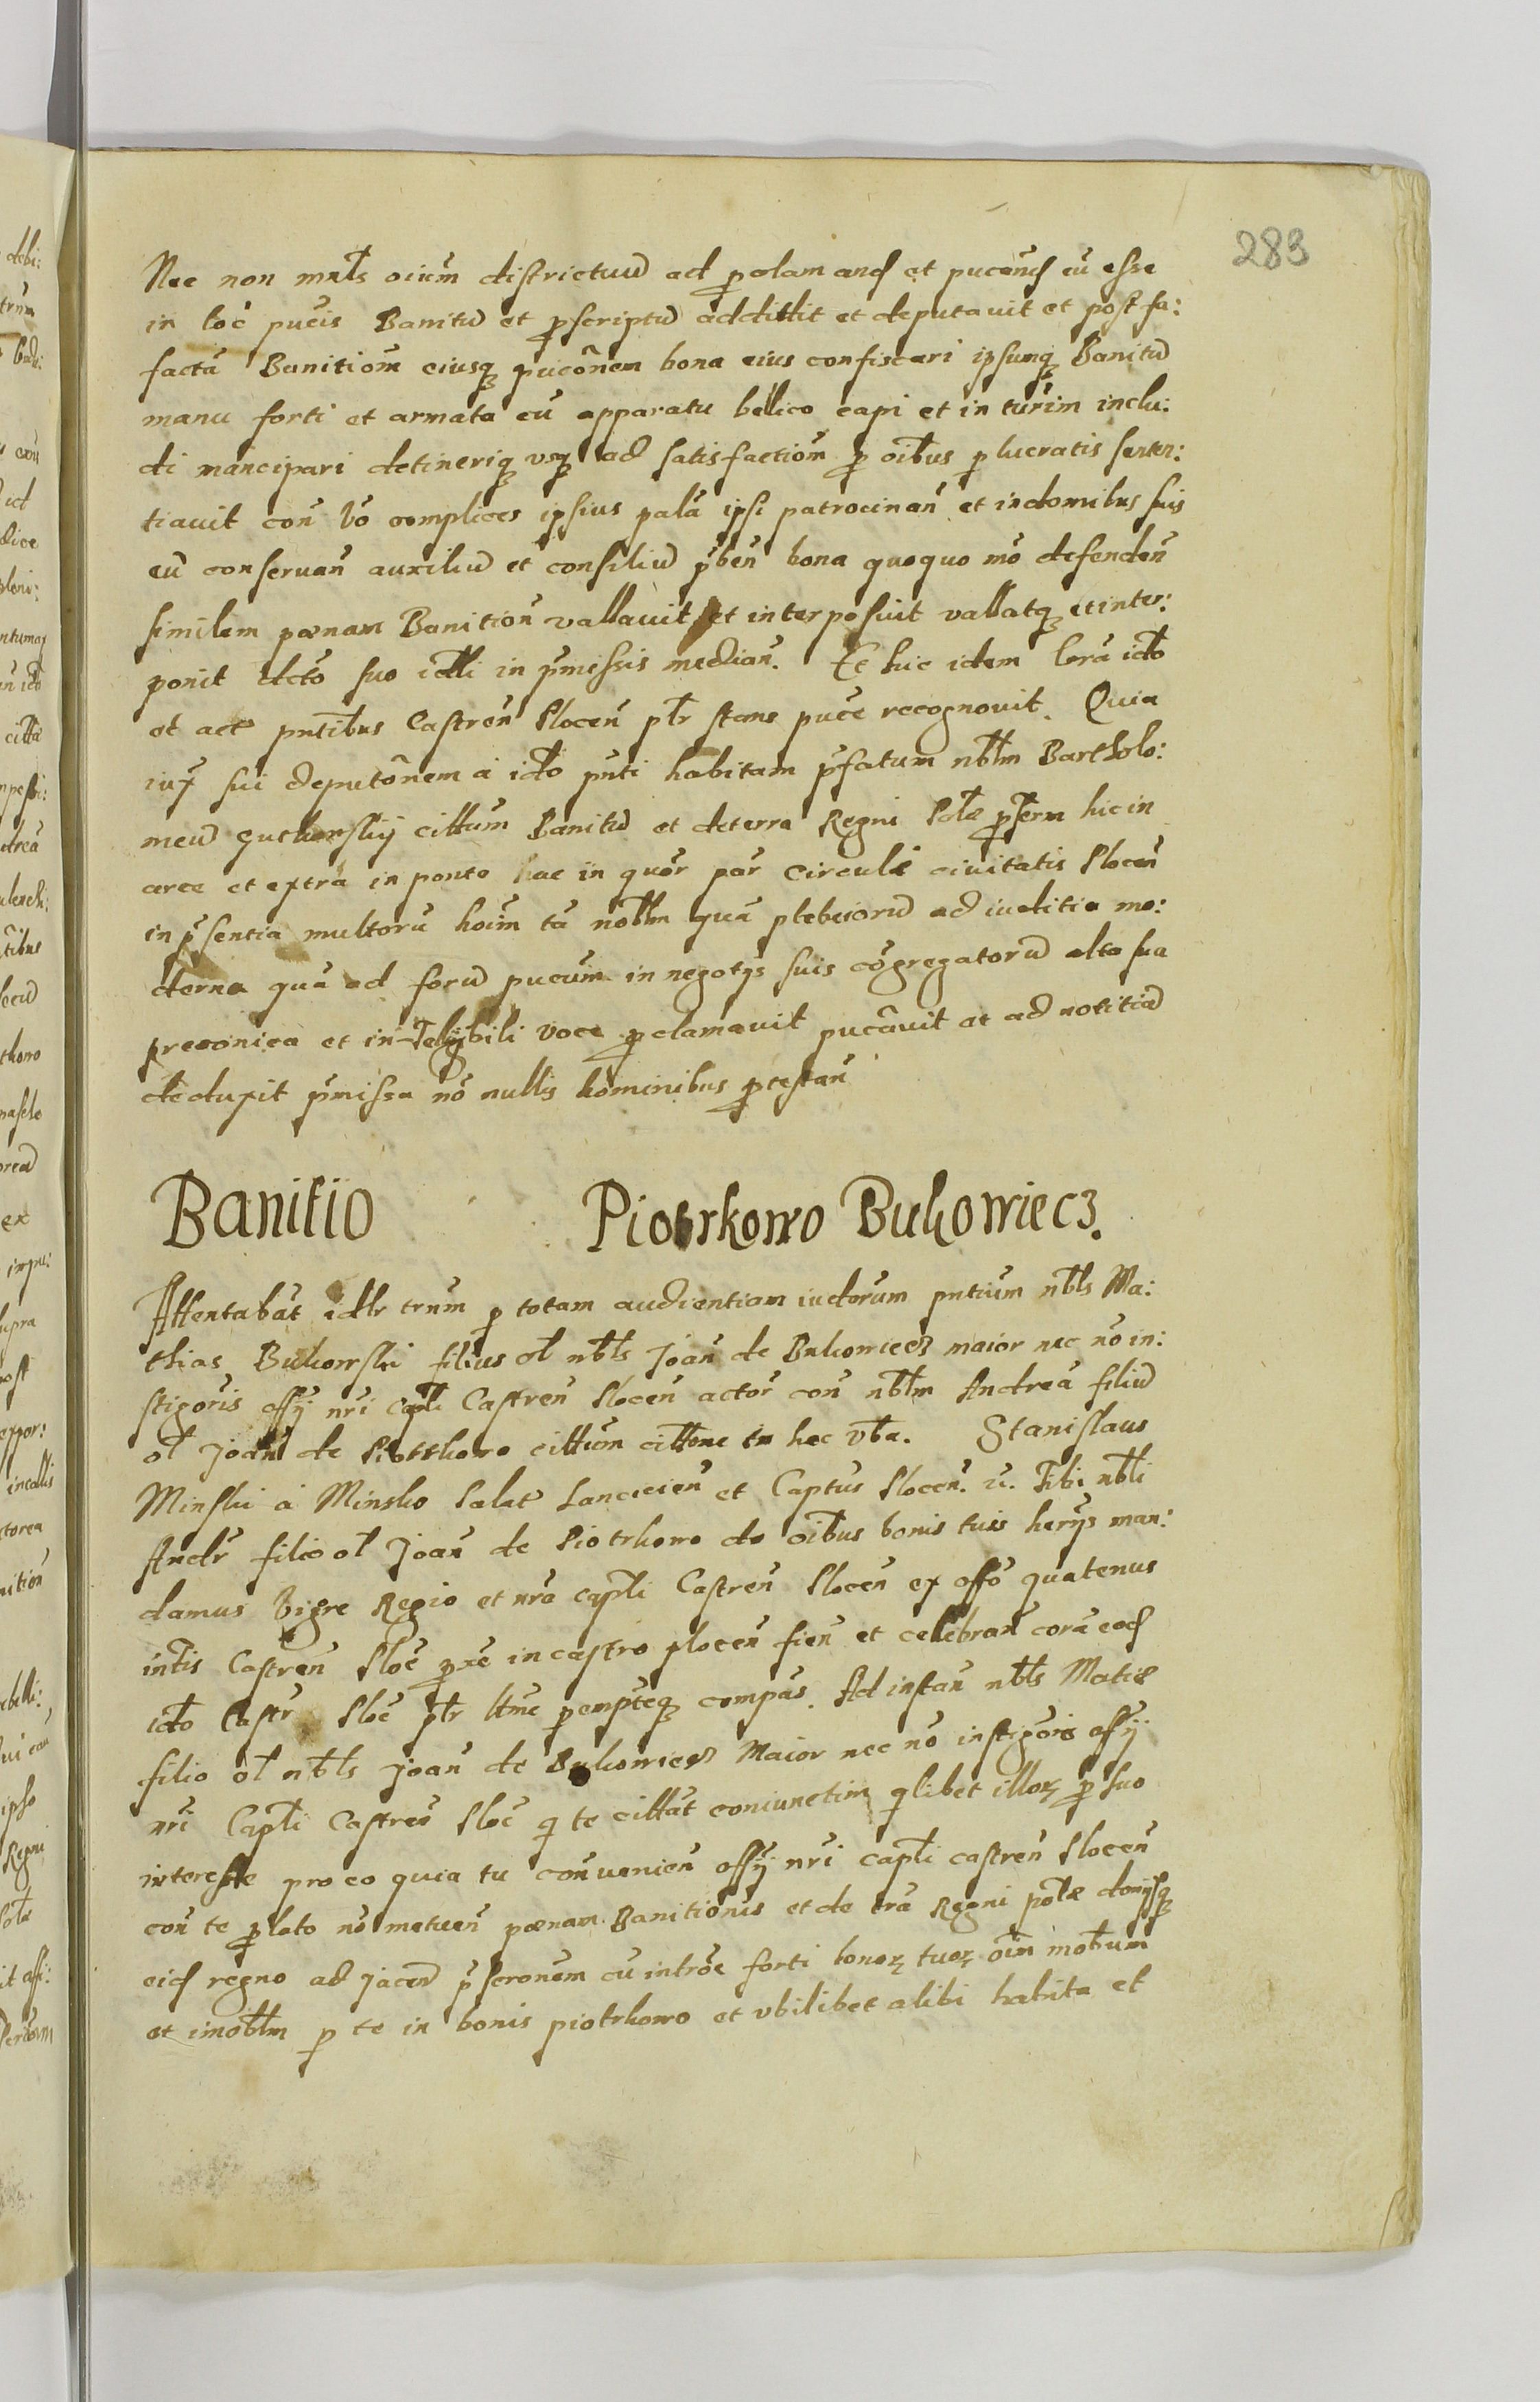 283
Nec non mnls oium districtuu ad proclamand et pucand cu esse
in loc pucis Banitu et proscriptu addidit et deputavit et post fa:
facta Banitiom eiusq pucõnem bona eius confiscari ipsumq Banitu
manu forti et armata cu apparatu belico capi et in turim inclu:
di mancipari detineriq vsq ad satisfactiom p oibus p lucratis senten:
tiavit con vo complices ipsius pala ipsi patrocinan et in domibus suis
eu conservan auxiliu et consiliu pben bona quoquo mo defenden
similem pœnam Banition vallavit et interposuit vallatq et inter:
ponit dcto suo idli in pmissis median. Et hic idem cora icto
et act pntibus Castren Plocen plr stans puce recognovit. Quia
iux sui deputõnem a icto pnti habitam pfatum nblm Bartholo:
meu cittum Banitu et de terra Regni Polæ pscrm hic in
arce et extra in ponte hac in quor par circuli civitatis Plocen
in psentia multoru hoim ta noblm qua plebeioru ad iuditia mo:
derna qua ad foru pucum in negotys suis cõgregatoru alta sua
preconica et in-Telijbili voce proclamavit pucavit et ad notitia
deduxit pmissa no nullis hominibus ptestan
Banitio Piotrkowo Bukowiecz.
Attentabat idlr trnm p totam audientiam iudorum pntium nbls Ma:
thias Bukowski filius ol nbls Joan de Bukowiecz maior nec no in:
stigoris offy nri capli Castren Plocen actor con nblm Andrea filiu
ol Joan de Piotrkowo cittum cittone in hec vba. Stanislaus
Minski a Minsko Palat Lancicien et Captus Plocen. Tibi nbli
Andr filio ol Joan de Piotrkowo de oibus bonis tuis herys man:
damus vigre Regio et nro capli Castren Plocen ex offo quatenus
intis Castren Ploc pxe in castro plocen fien et celebran cora eod
icto Castr Ploc plr ltme pempteq compas. Ad instan nbls Matiæ
filio ol nbls Joan de Bukowiecz Maior nec no instigoris offy
nri Capli Castren Ploc q te cittat coniunctim qlibet illor p suo
interesse pro eo quia tu con uenien offy nri capli castren Plocen
con te plato no metuen pœnam Banitionis et de tra Regni polæ donijsq
eid regno ad jacen pscronem cu introe forti bonor tuor oim mobium
et imoblm p te in bonis piotrkowo et vbilibet alibi habita et